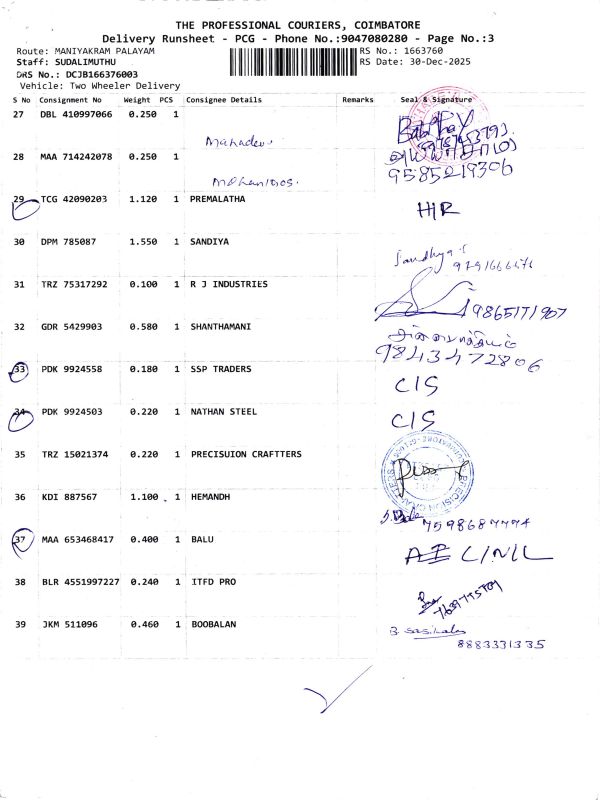 THE PROFESSIONAL COURIERS, COIMBATORE
Delivery Runsheet - PCG - Phone No.:9047080280 - Page No.:3
Route: MANIYAKRAM PALAYAM
RS No.: 1663760
Staff: SUDALIMUTHU
RS Date: 30-Dec-2025
DRS No.: DCJB166376003
Vehicle: Two Wheeler Delivery
S No Consignment No Weight PCS Consignee Details Remarks Seal & Signature
27 DBL 410997066 0.250 1
Mahadev
28 MAA 714242078 0.250 1
9585219306
29 TCG 42090203 1.120 1 PREMALATHA H/R
30 DPM 785087 1.550 1 SANDIYA
Sandhya
31 TRZ 75317292 0.100 1 R J INDUSTRIES
32 GDR 5429903 0.580 1 SHANTHAMANI
9843472806
33 PDK 9924558 0.180 1 SSP TRADERS C/S
34 PDK 9924503 0.220 1 NATHAN STEEL C/S
35 TRZ 15021374 0.220 1 PRECISUION CRAFTTERS
36 KDI 887567 1.100 1 HEMANDH
37 MAA 653468417 0.400 1 BALU
38 BLR 4551997227 0.240 1 ITFD PRO
39 JKM 511096 0.460 1 BOOBALAN
8883331335